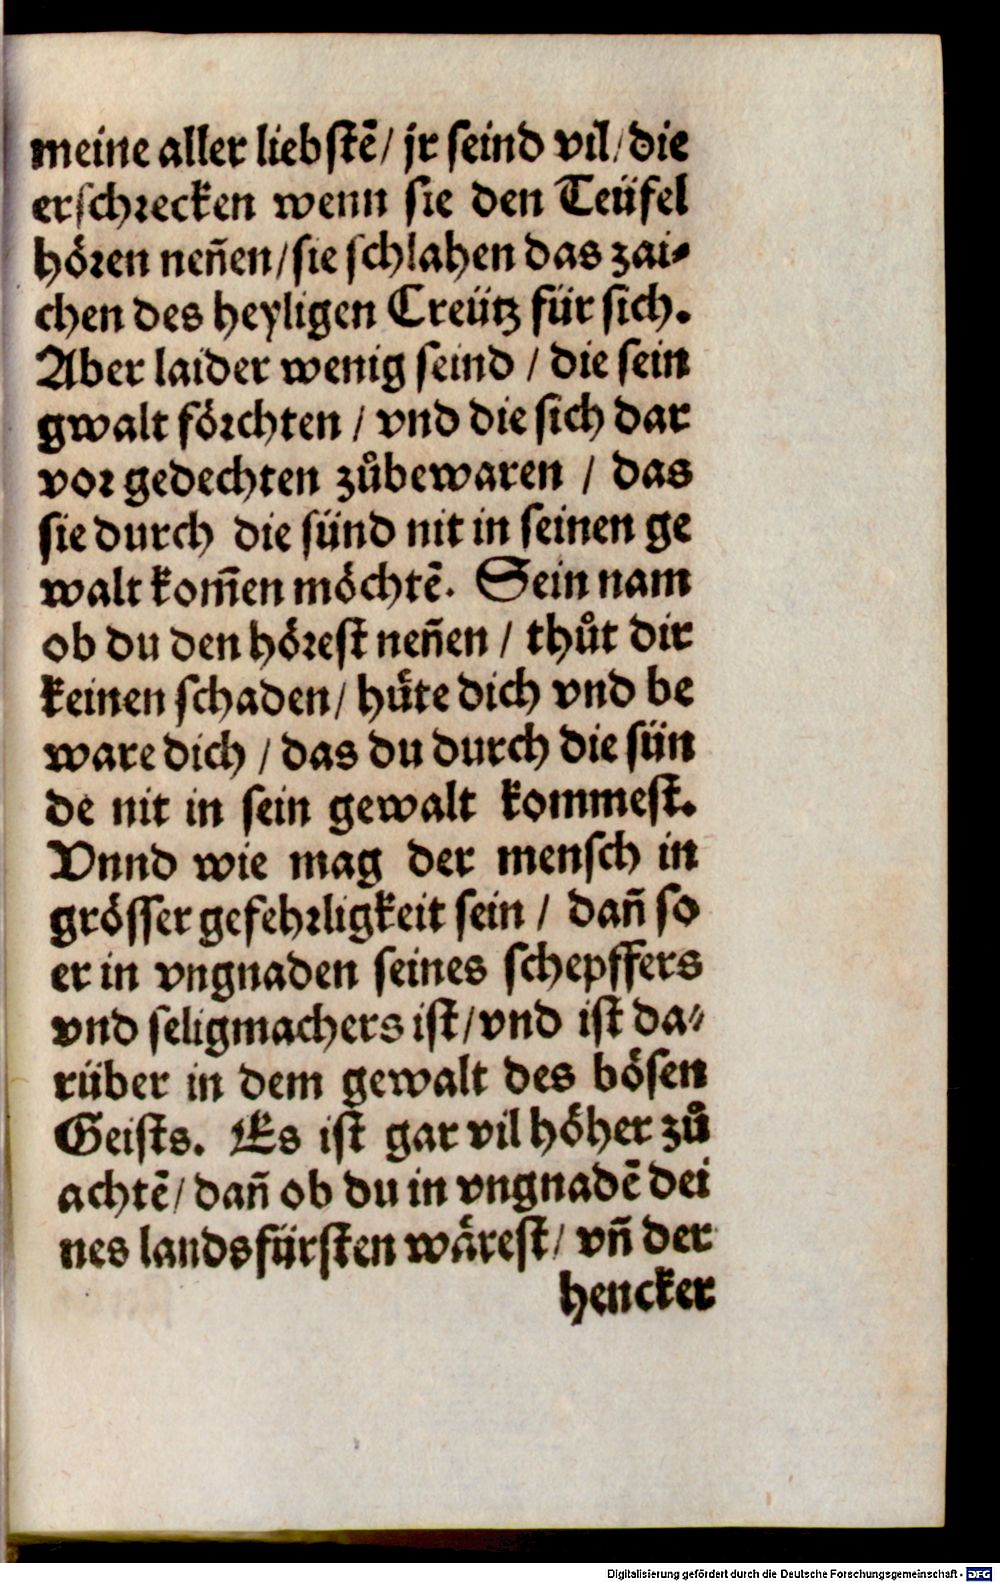 meine aller liebstē/ jr seind vil/ die
erschrecken wenn sie den Teüfel
hören neñen/ sie schlahen das zai-
chen des heyligen Creütz für sich.
Aber laider wenig seind / die sein
gwalt förchten / vnd die sich dar
vor gedechten zůbewaren / das
sie durch die sünd nit in seinen ge
walt kom̄en möchtē. Sein nam
ob du den hörest neñen / thůt dir
keinen schaden/ hůte dich vnd be
ware dich / das du durch die sün
de nit in sein gewalt kommest.
Vnnd wie mag der mensch in
grösser gefehrligkeit sein / dañ so
er in vngnaden seines schepffers
vnd seligmachers ist/ vnd ist da-
rüber in dem gewalt des bösen
Geists. Es ist gar vil höher zů
achtē/ dañ ob du in vngnadē dei
nes landsfürsten wårest/ vñ der
hencker
Digitalisierung gefördert durch die Deutsche Forschungsgemeinschaft - DFG